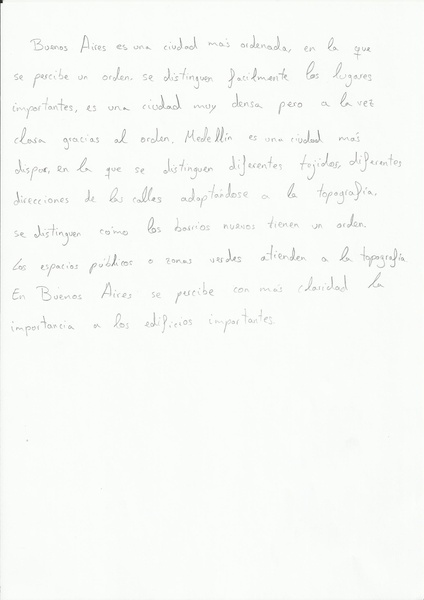 Buenos Aires es una ciudad más ordenada, en la que
se percibe un orden. se distinguen facilmente los lugares
importantes, es una ciudad muy densa pero a la vez
clara gracias al orden. Medellín es una ciudad más
dispar, en la que se distinguen diferentes tejidos, diferentes
direcciones de las calles adaptándose a la topografía.
se distinguen como los barrios nuevos tienen un orden.
Los espacios públicos o zonas verdes atienden a la topografía
En Buenos Aires se percibe con más claridad la
importancia a los edificios importantes.